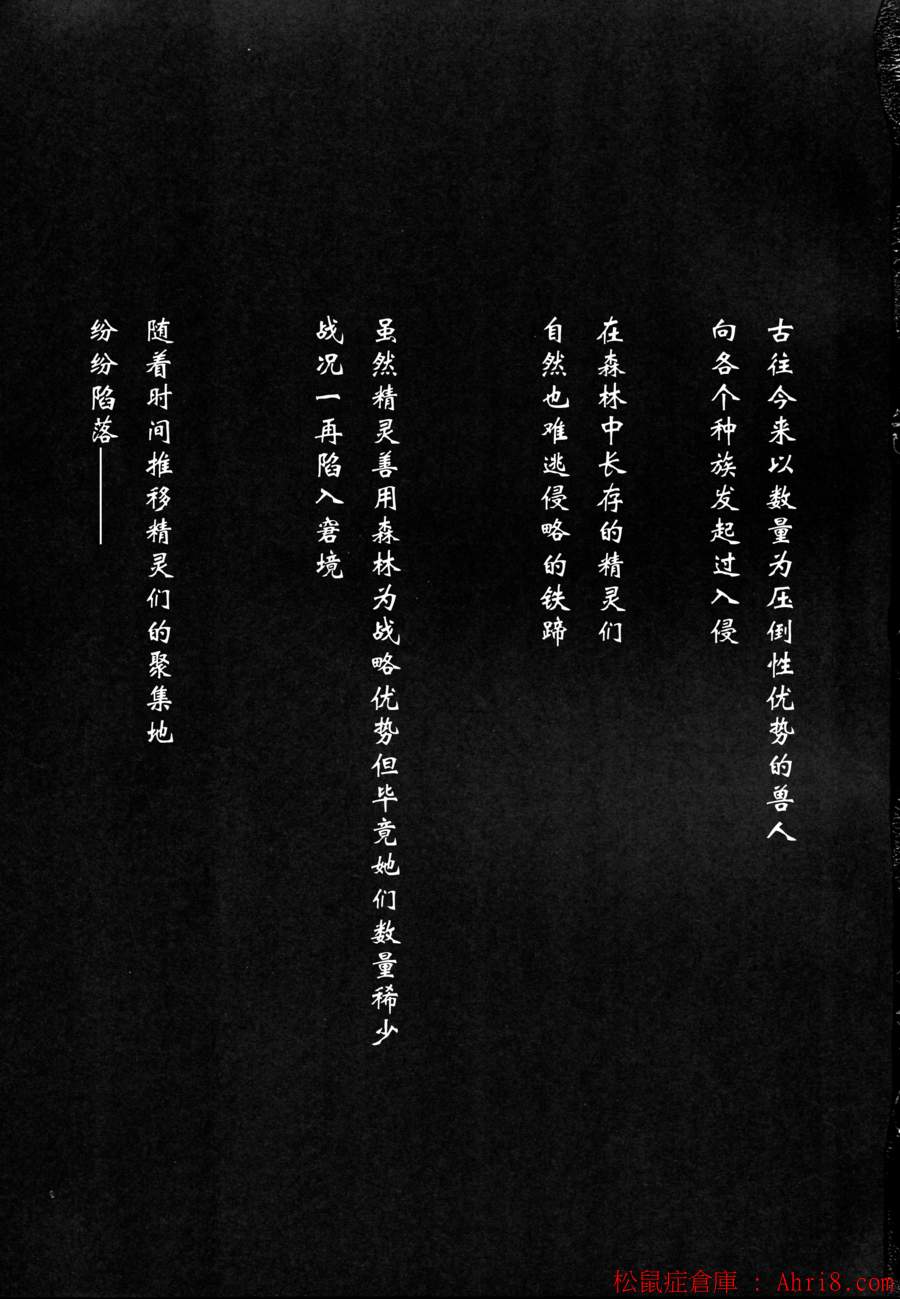 古往今来以数量为压倒性优势的兽人
向各个种族发起过入侵
在森林中长存的精灵们
自然也难逃侵略的铁蹄
虽然精灵善用森林为战略优势但毕竟她们数量稀少
战况一再陷入窘境
随着时间推移精灵们的聚集地
纷纷陷落——
松鼠症倉庫 : Ahri8.com